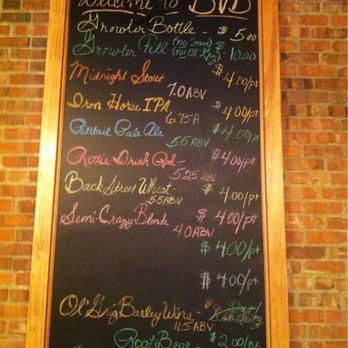 Welcome to BVB
Growler Bottle - $ 5.00
Growler Fill (no Stout) - 10.00
Midnight Stout $ 4.00/pt
7.0 ABV
Iron Horse IPA $ 4.00/pt
6.75 A
Pintail Pale Ale $ 4.00/pt
5.5 ABV
Rosie Drink Red - $ 4.00/pt
5.25 ABV
Back Street Wheat - $ 4.00/pt
5.5 ABV
Semi-Crazy Blonde $ 4.00/pt
4.0 ABV
$ 4.00/pt
$ 4.00/pt
Ol' Grig Barley Wine - $
11.5 ABV
Root Beer - $ 2.00/